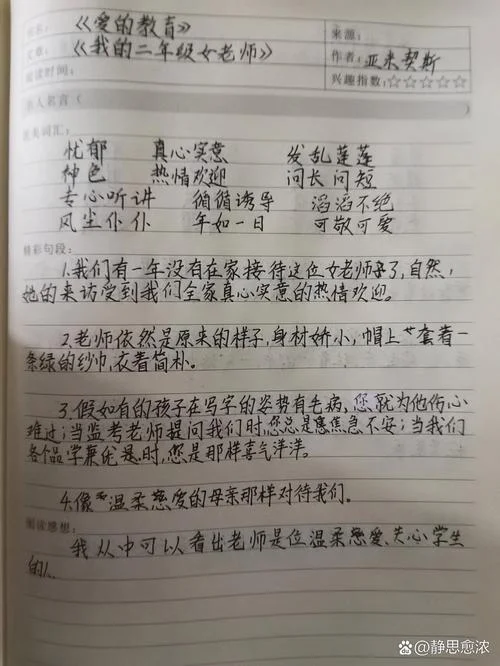 书名：《爱的教育》 来源：
文章：《我的二年级女老师》 作者：亚米契斯
阅读时间： 兴趣指数：☆☆☆☆☆
名人名言（
优美词汇：
忧郁 真心实意 发乱蓬蓬
神色 热情欢迎 问长问短
专心听讲 循循诱导 滔滔不绝
风尘仆仆 年如一日 可敬可爱
精彩句段：
1.我们有一年没有在家接待这位女老师了，自然，
她的来访受到我们全家真心实意的热情欢迎。
2.老师依然是原来的样子，身材娇小，帽上套着一
条绿的纱巾，衣着简朴。
3.假如有的孩子在写字的姿势有毛病，您就为他伤心
难过；当监考老师提问我们时，您总是焦急不安；当我们
各个品学兼优时，您是那样喜气洋洋。
4.像温柔慈爱的母亲那样对待我们。
阅读感想：
我从中可以看出老师是位温柔慈爱、关心学生
的人
静思愈浓